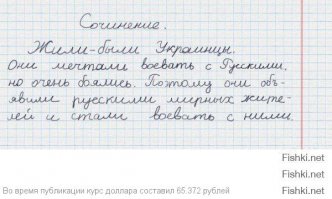 Сочинение.
Жили-были Украинцы.
Они мечтали воевать с Русскими,
но очень боялись. Поэтому они объ-
явили русскими мирных жите-
лей и стали воевать с ними.
Fishki.net
Fishki.net
Во время публикации курс доллара составил 65.372 рублей
Fishki.net
Fishki.net